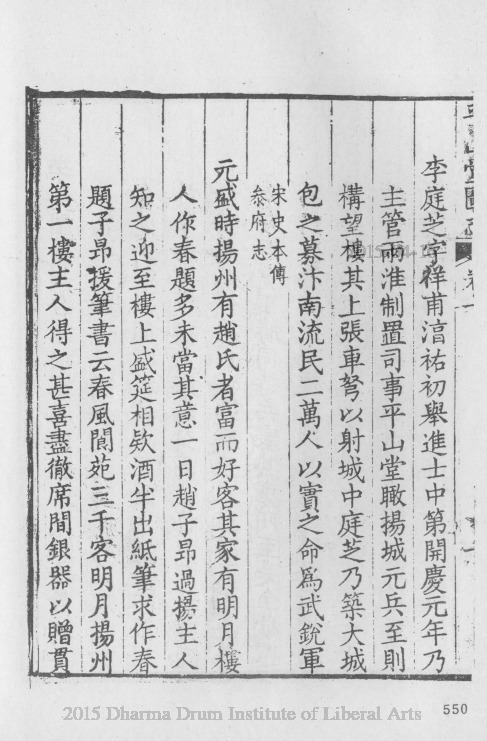 李庭芝字祥甫淳祐初舉進士中第開慶元年乃
主管兩淮制置司事平山堂瞰揚城元兵至則
構望樓其上張車弩以射城中庭芝乃築大城
包之募汴南流民二萬人以實之命爲武銳軍
宋史本傳
叅府志
元盛時揚州有趙氏者富而好客其家有明月樓
人作春題多未當其意一日趙子昂過揚主人
知之迎至樓上盛筵相欵酒半出紙筆求作春
題子昂援筆書云春風閬苑三千客明月揚州
第一樓主人得之甚喜盡徹席間銀器以贈貫
2015 Dharma Drum Institute of Liberal Arts
550